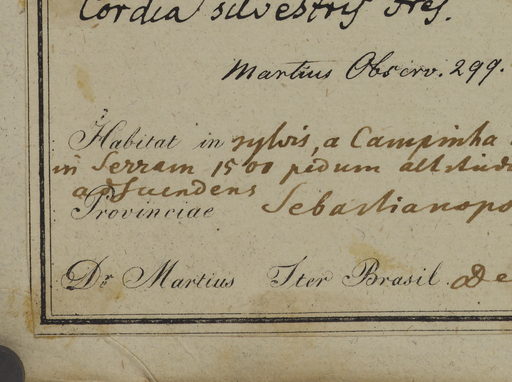 Cordia silvestris Fres.
Martius Observ. 299.
Habitat in sylvis, a Campinha
in Serram 1500 pedum altitud
adscendens
Provinciae Sebastianopo
Dr. Martius Iter Brasil. De